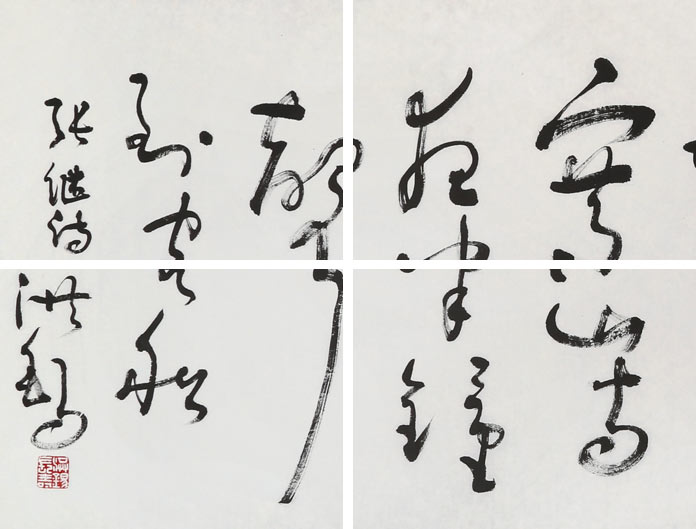 寒山寺
夜半钟
声
到客船
张继诗
洪锡